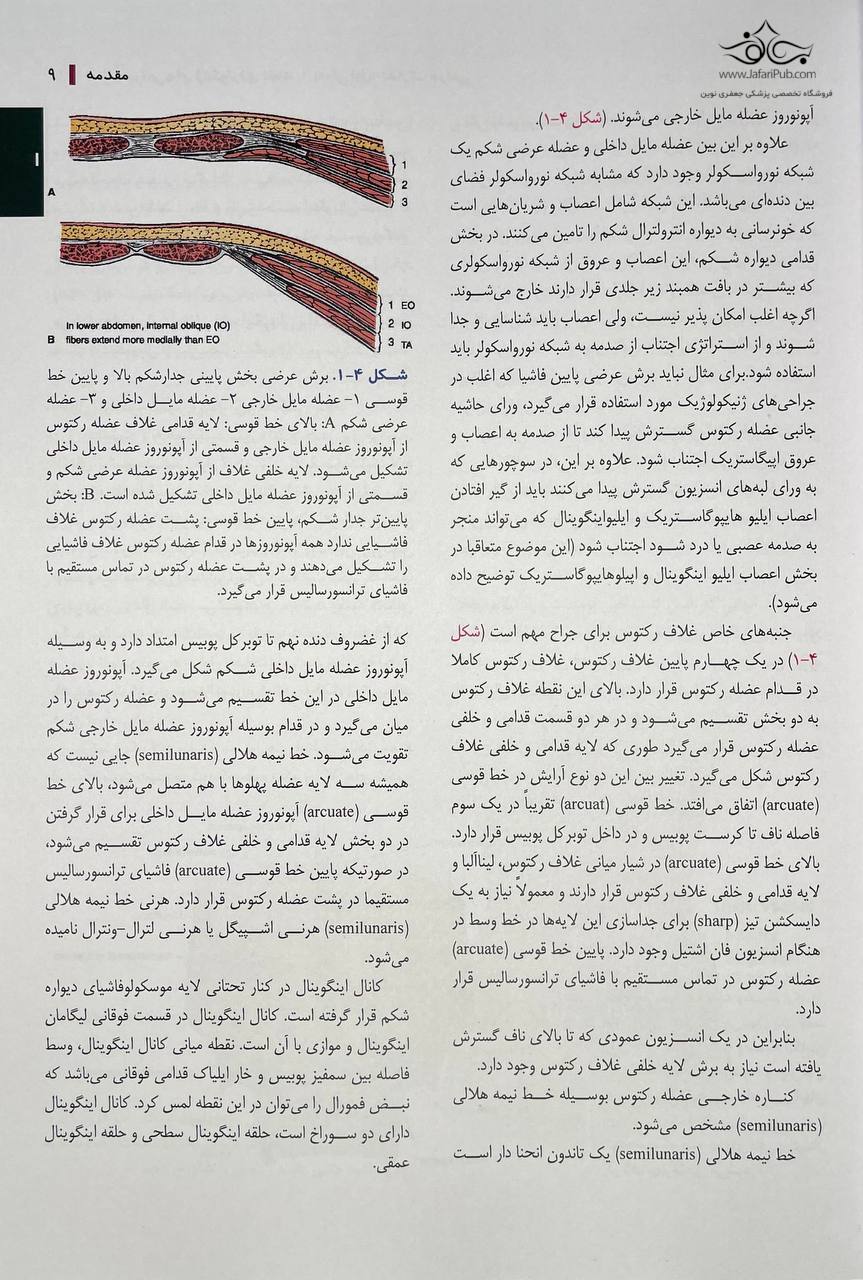 بهاف
www.JafariPub.com
فروشگاه تخصصی پزشکی جعفری نوین
مقدمه ۹
I
آپونوروز عضله مایل خارجی می‌شوند. (شکل ۴-۱).
علاوه بر این بین عضله مایل داخلی و عضله عرضی شکم یک
شبکه نورواسکولر وجود دارد که مشابه شبکه نورواسکولر فضای
بین دنده‌ای می‌باشد. این شبکه شامل اعصاب و شریان‌هایی است
که خونرسانی به دیواره انترولترال شکم را تامین می‌کنند. در بخش
قدامی دیواره شکم، این اعصاب و عروق از شبکه نورواسکولری
که بیشتر در بافت همبند زیر جلدی قرار دارند خارج می‌شوند.
اگرچه اغلب امکان پذیر نیست، ولی اعصاب باید شناسایی و جدا
شوند و از استراتژی اجتناب از صدمه به شبکه نورواسکولر باید
استفاده شود.برای مثال نباید برش عرضی پایین فاشیا که اغلب در
جراحی‌های ژنیکولوژیک مورد استفاده قرار می‌گیرد، ورای حاشیه
جانبی عضله رکتوس گسترش پیدا کند تا از صدمه به اعصاب و
عروق اپیگاستریک اجتناب شود. علاوه بر این، در سوچورهایی که
به ورای لبه‌های انسزیون گسترش پیدا می‌کنند باید از گیر افتادن
اعصاب ایلیو هایپوگاستریک و ایلیواینگوینال که می‌تواند منجر
به صدمه عصبی یا درد شود اجتناب شود (این موضوع متعاقبا در
بخش اعصاب ایلیو اینگوینال و ایپلوهایپوگاستریک توضیح داده
می‌شود).
جنبه‌های خاص غلاف رکتوس برای جراح مهم است (شکل
۴-۱) در یک چهارم پایین غلاف رکتوس، غلاف رکتوس کاملا
در قدام عضله رکتوس قرار دارد. بالای این نقطه غلاف رکتوس
به دو بخش تقسیم می‌شود و در هر دو قسمت قدامی و خلفی
عضله رکتوس قرار می‌گیرد طوری که لایه قدامی و خلفی غلاف
رکتوس شکل می‌گیرد. تغییر بین این دو نوع آرایش در خط قوسی
(arcuate) اتفاق می‌افتد. خط قوسی (arcuat) تقریباً در یک سوم
فاصله ناف تا کرست پوبیس و در داخل توبرکل پوبیس قرار دارد.
بالای خط قوسی (arcuate) در شیار میانی غلاف رکتوس، لیناآلبا و
لایه قدامی و خلفی غلاف رکتوس قرار دارند و معمولاً نیاز به یک
دایسکشن تیز (sharp) برای جداسازی این لایه‌ها در خط وسط در
هنگام انسزیون فان اشتیل وجود دارد. پایین خط قوسی (arcuate)
عضله رکتوس در تماس مستقیم با فاشیای ترانسورسالیس قرار
دارد.
بنابراین در یک انسزیون عمودی که تا بالای ناف گسترش
یافته است نیاز به برش لایه خلفی غلاف رکتوس وجود دارد.
کناره خارجی عضله رکتوس بوسیله خط نیمه هلالی
(semilunaris) مشخص می‌شود.
خط نیمه هلالی (semilunaris) یک تاندون انحنا دار است
A
1
2
3
1 EO
2 IO
3 TA
In lower abdomen, internal oblique (IO)
B fibers extend more medially than EO
شکل ۴-۱. برش عرضی بخش پایینی جدارشکم بالا و پایین خط
قوسی ۱- عضله مایل خارجی ۲- عضله مایل داخلی و ۳- عضله
عرضی شکم A: بالای خط قوسی: لایه قدامی غلاف عضله رکتوس
از آپونوروز عضله مایل خارجی و قسمتی از آپونوروز عضله مایل داخلی
تشکیل می‌شود. لایه خلفی غلاف از آپونوروز عضله عرضی شکم و
قسمتی از آپونوروز عضله مایل داخلی تشکیل شده است. B: بخش
پایین‌تر جدار شکم، پایین خط قوسی: پشت عضله رکتوس غلاف
فاشیایی ندارد همه آپونوروزها در قدام عضله رکتوس غلاف فاشیایی
را تشکیل می‌دهند و در پشت عضله رکتوس در تماس مستقیم با
فاشیای ترانسورسالیس قرار می‌گیرد.
که از غضروف دنده نهم تا توبرکل پوبیس امتداد دارد و به وسیله
آپونوروز عضله مایل داخلی شکم شکل می‌گیرد. آپونوروز عضله
مایل داخلی در این خط تقسیم می‌شود و عضله رکتوس را در
میان می‌گیرد و در قدام بوسیله آپونوروز عضله مایل خارجی شکم
تقویت می‌شود. خط نیمه هلالی (semilunaris) جایی نیست که
همیشه سه لایه عضله پهلوها با هم متصل می‌شود، بالای خط
قوسی (arcuate) آپونوروز عضله مایل داخلی برای قرار گرفتن
در دو بخش لایه قدامی و خلفی غلاف رکتوس تقسیم می‌شود،
در صورتیکه پایین خط قوسی (arcuate) فاشیای ترانسورسالیس
مستقیما در پشت عضله رکتوس قرار دارد. هرنی خط نیمه هلالی
(semilunaris) هرنی اشپیگل یا هرنی لترال-ونترال نامیده
می‌شود.
کانال اینگوینال در کنار تحتانی لایه موسکولوفاشیای دیواره
شکم قرار گرفته است. کانال اینگوینال در قسمت فوقانی لیگامان
اینگوینال و موازی با آن است. نقطه میانی کانال اینگوینال، وسط
فاصله بین سمفیز پوبیس و خار ایلیاک قدامی فوقانی می‌باشد که
نبض فمورال را می‌توان در این نقطه لمس کرد. کانال اینگوینال
دارای دو سوراخ است، حلقه اینگوینال سطحی و حلقه اینگوینال
عمقی.